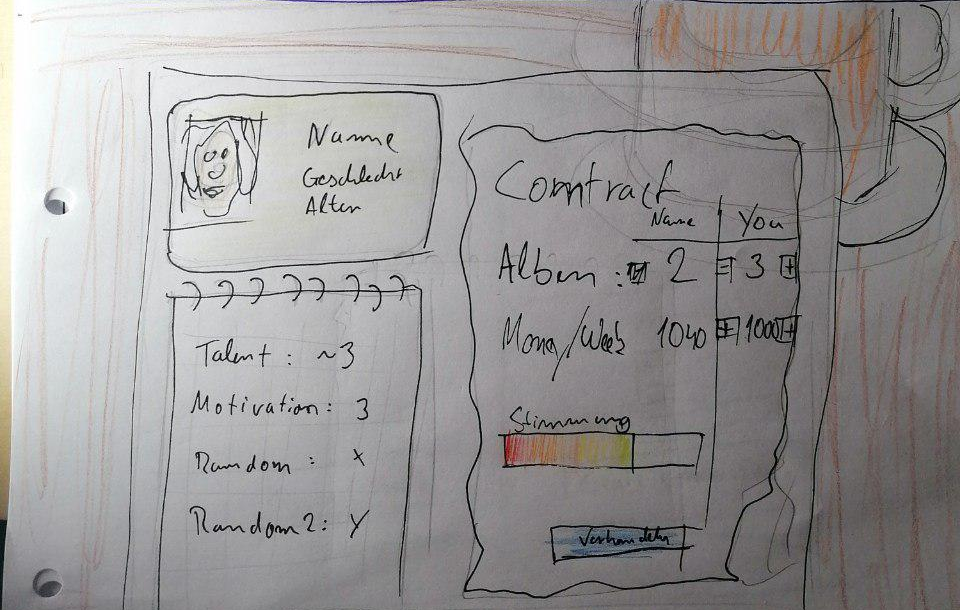 Name
Geschlecht
Alter
Talent: ~3
Motivation: 3
Random : x
Random2: y
Contract
Name You
Alben : - 2 - 3 +
Money/Week 1040 + 1000 +
Stimmung
Verhandeln